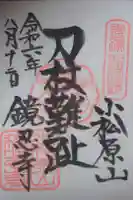 小松原山
刀杖難趾
鏡忍寺
令和六年
八月十二日